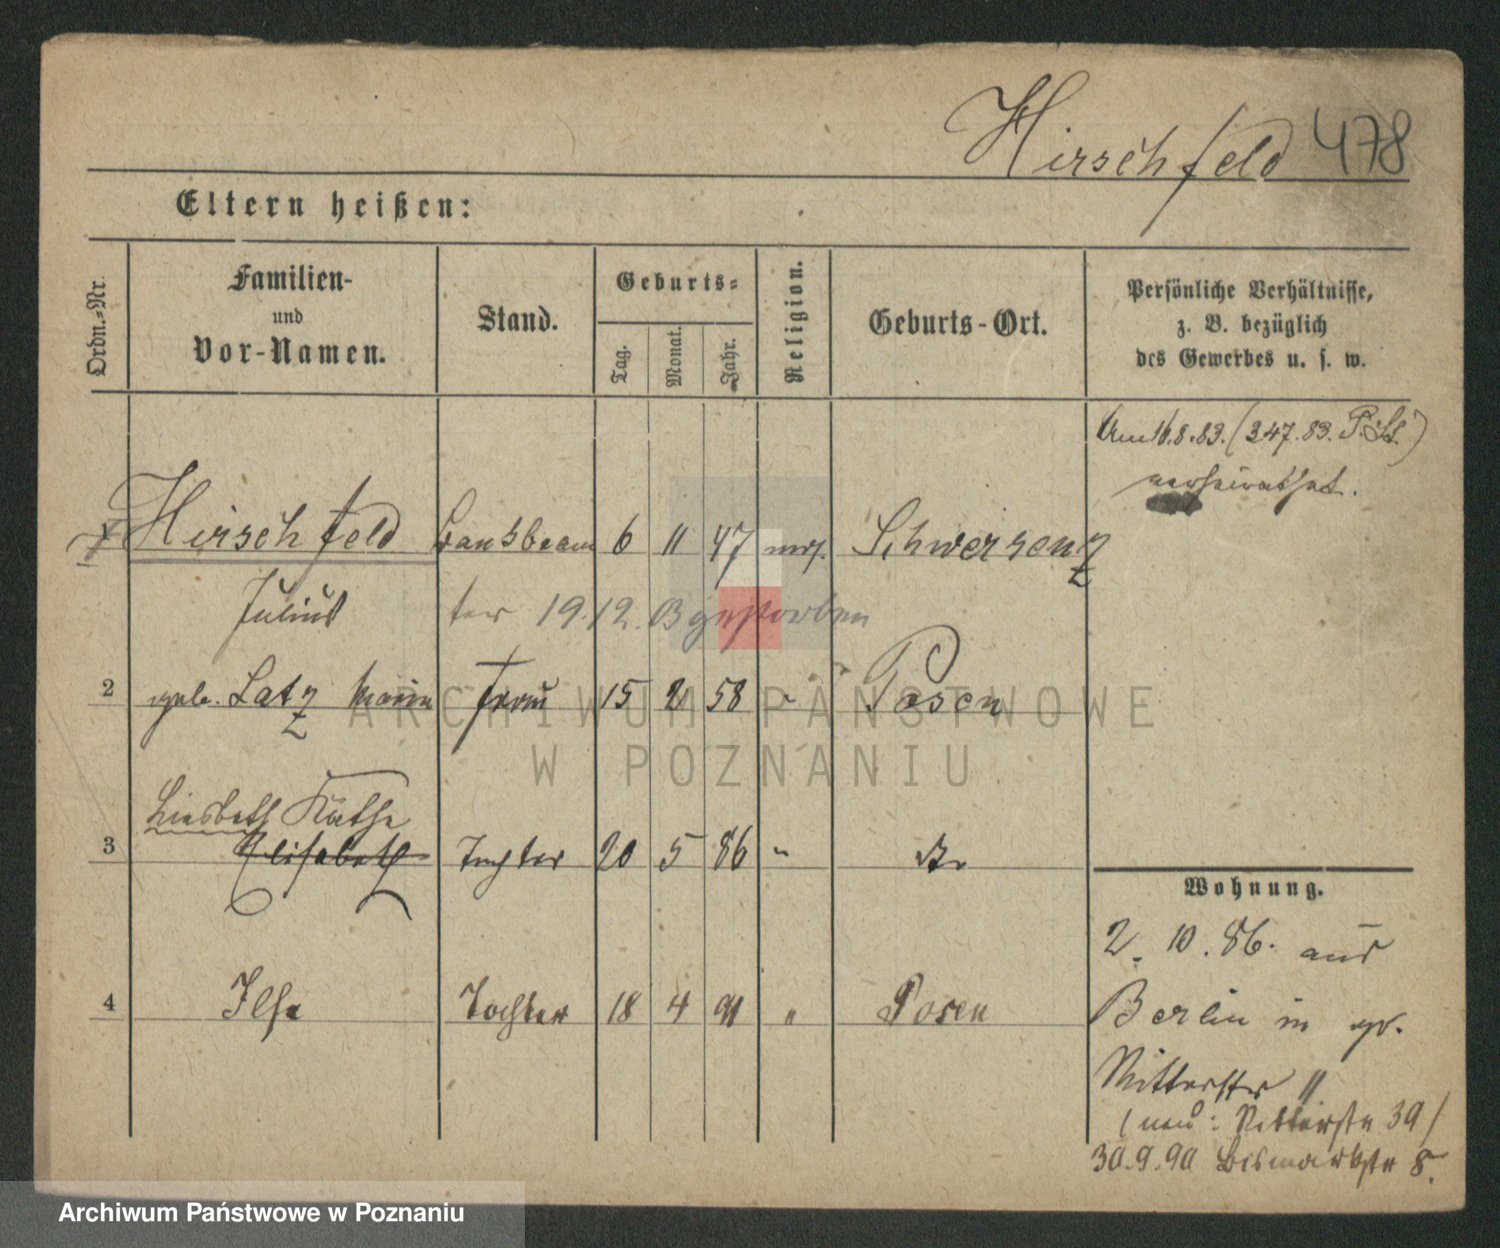 Hirschfeld 478
Eltern heißen:
Ordn.=Nr.
Familien-
und
Vor-Namen.
Stand.
Geburts=
Tag.
Monat.
Jahr.
Religion.
Geburts-Ort.
Persönliche Verhältnisse,
z. B. bezüglich
des Gewerbes u. s. w.
Am 16.8.83. (347.83. P. St.)
verheirathet.
Hirschfeld 6 11 47 mos. Schwersenz
Julius ter 19.12. gestorben
2 geb. Latz Frau 15 2 58 " Posen
Liesbeth Käthe
3 Elisabeth Tochter 20 5 86 "
4 Ilse Tochter 18 4 91 " Posen
Wohnung.
2. 10. 86. aus
Berlin in gr.
Ritterstr 11
(neu: Ritterstr 39)
30.9.90 Bismarkstr 8.
ARCHIWUM PAŃSTWOWE
W POZNANIU
Archiwum Państwowe w Poznaniu